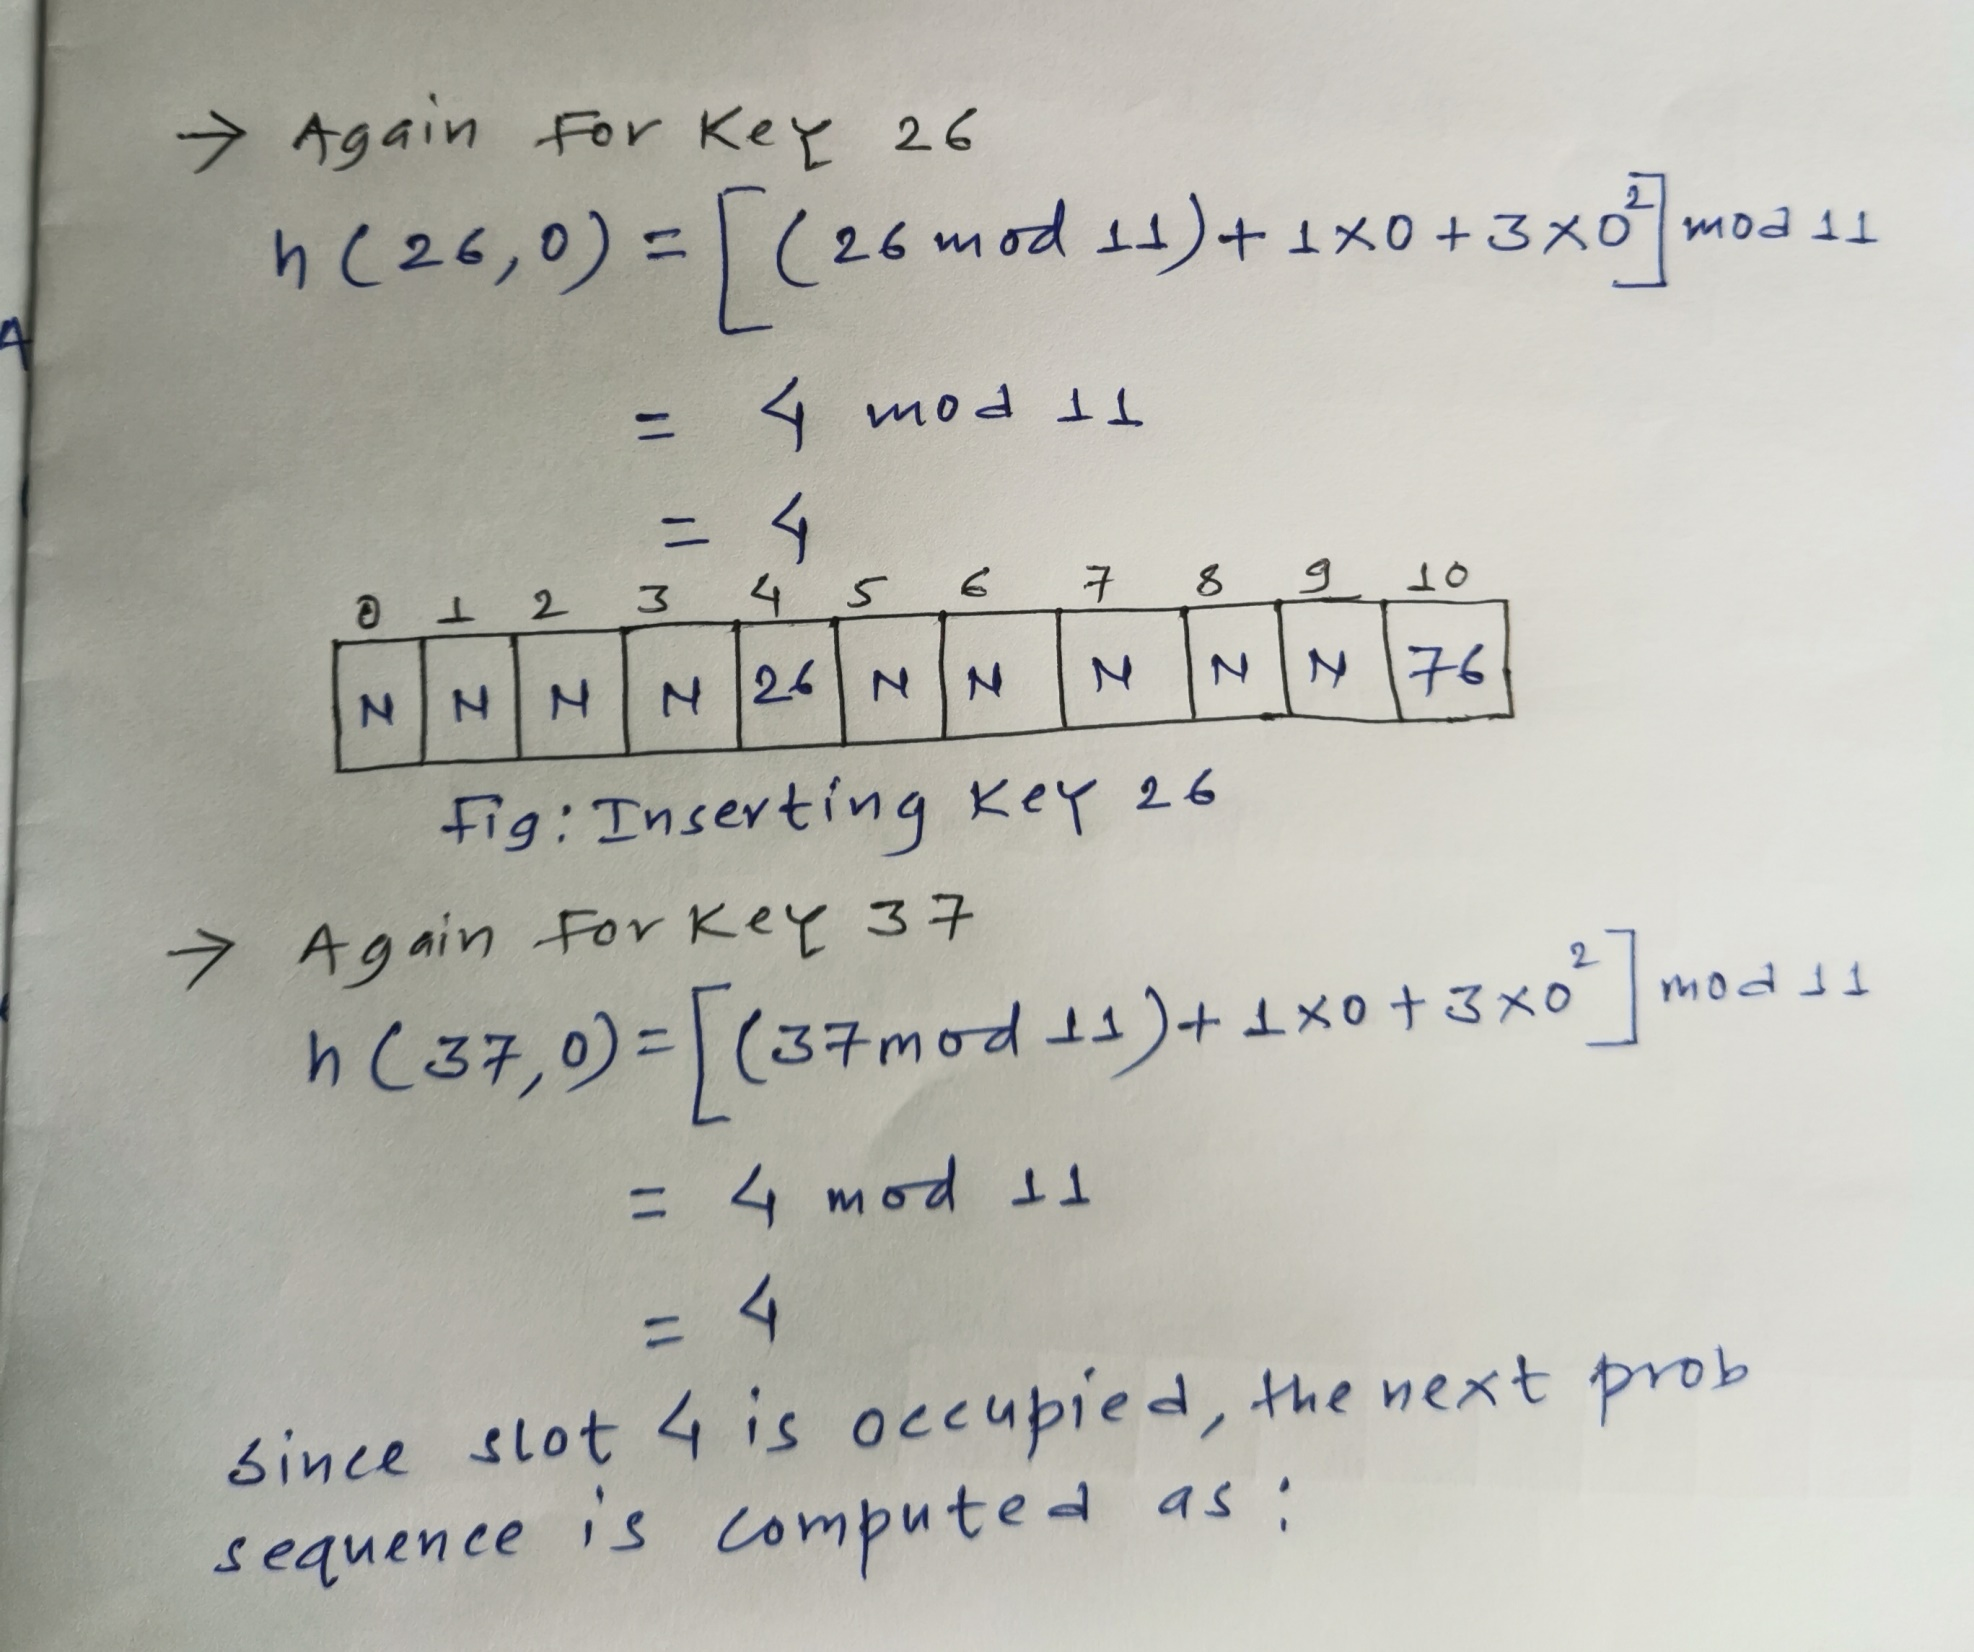 → Again For Key 26
h(26,0) = [(26 mod 11) + 1×0 + 3×0²] mod 11
= 4 mod 11
= 4
0 1 2 3 4 5 6 7 8 9 10
N N N N 26 N N N N N 76
Fig: Inserting Key 26
→ Again For Key 37
h(37,0) = [(37 mod 11) + 1×0 + 3×0²] mod 11
= 4 mod 11
= 4
since slot 4 is occupied, the next prob
sequence is computed as :